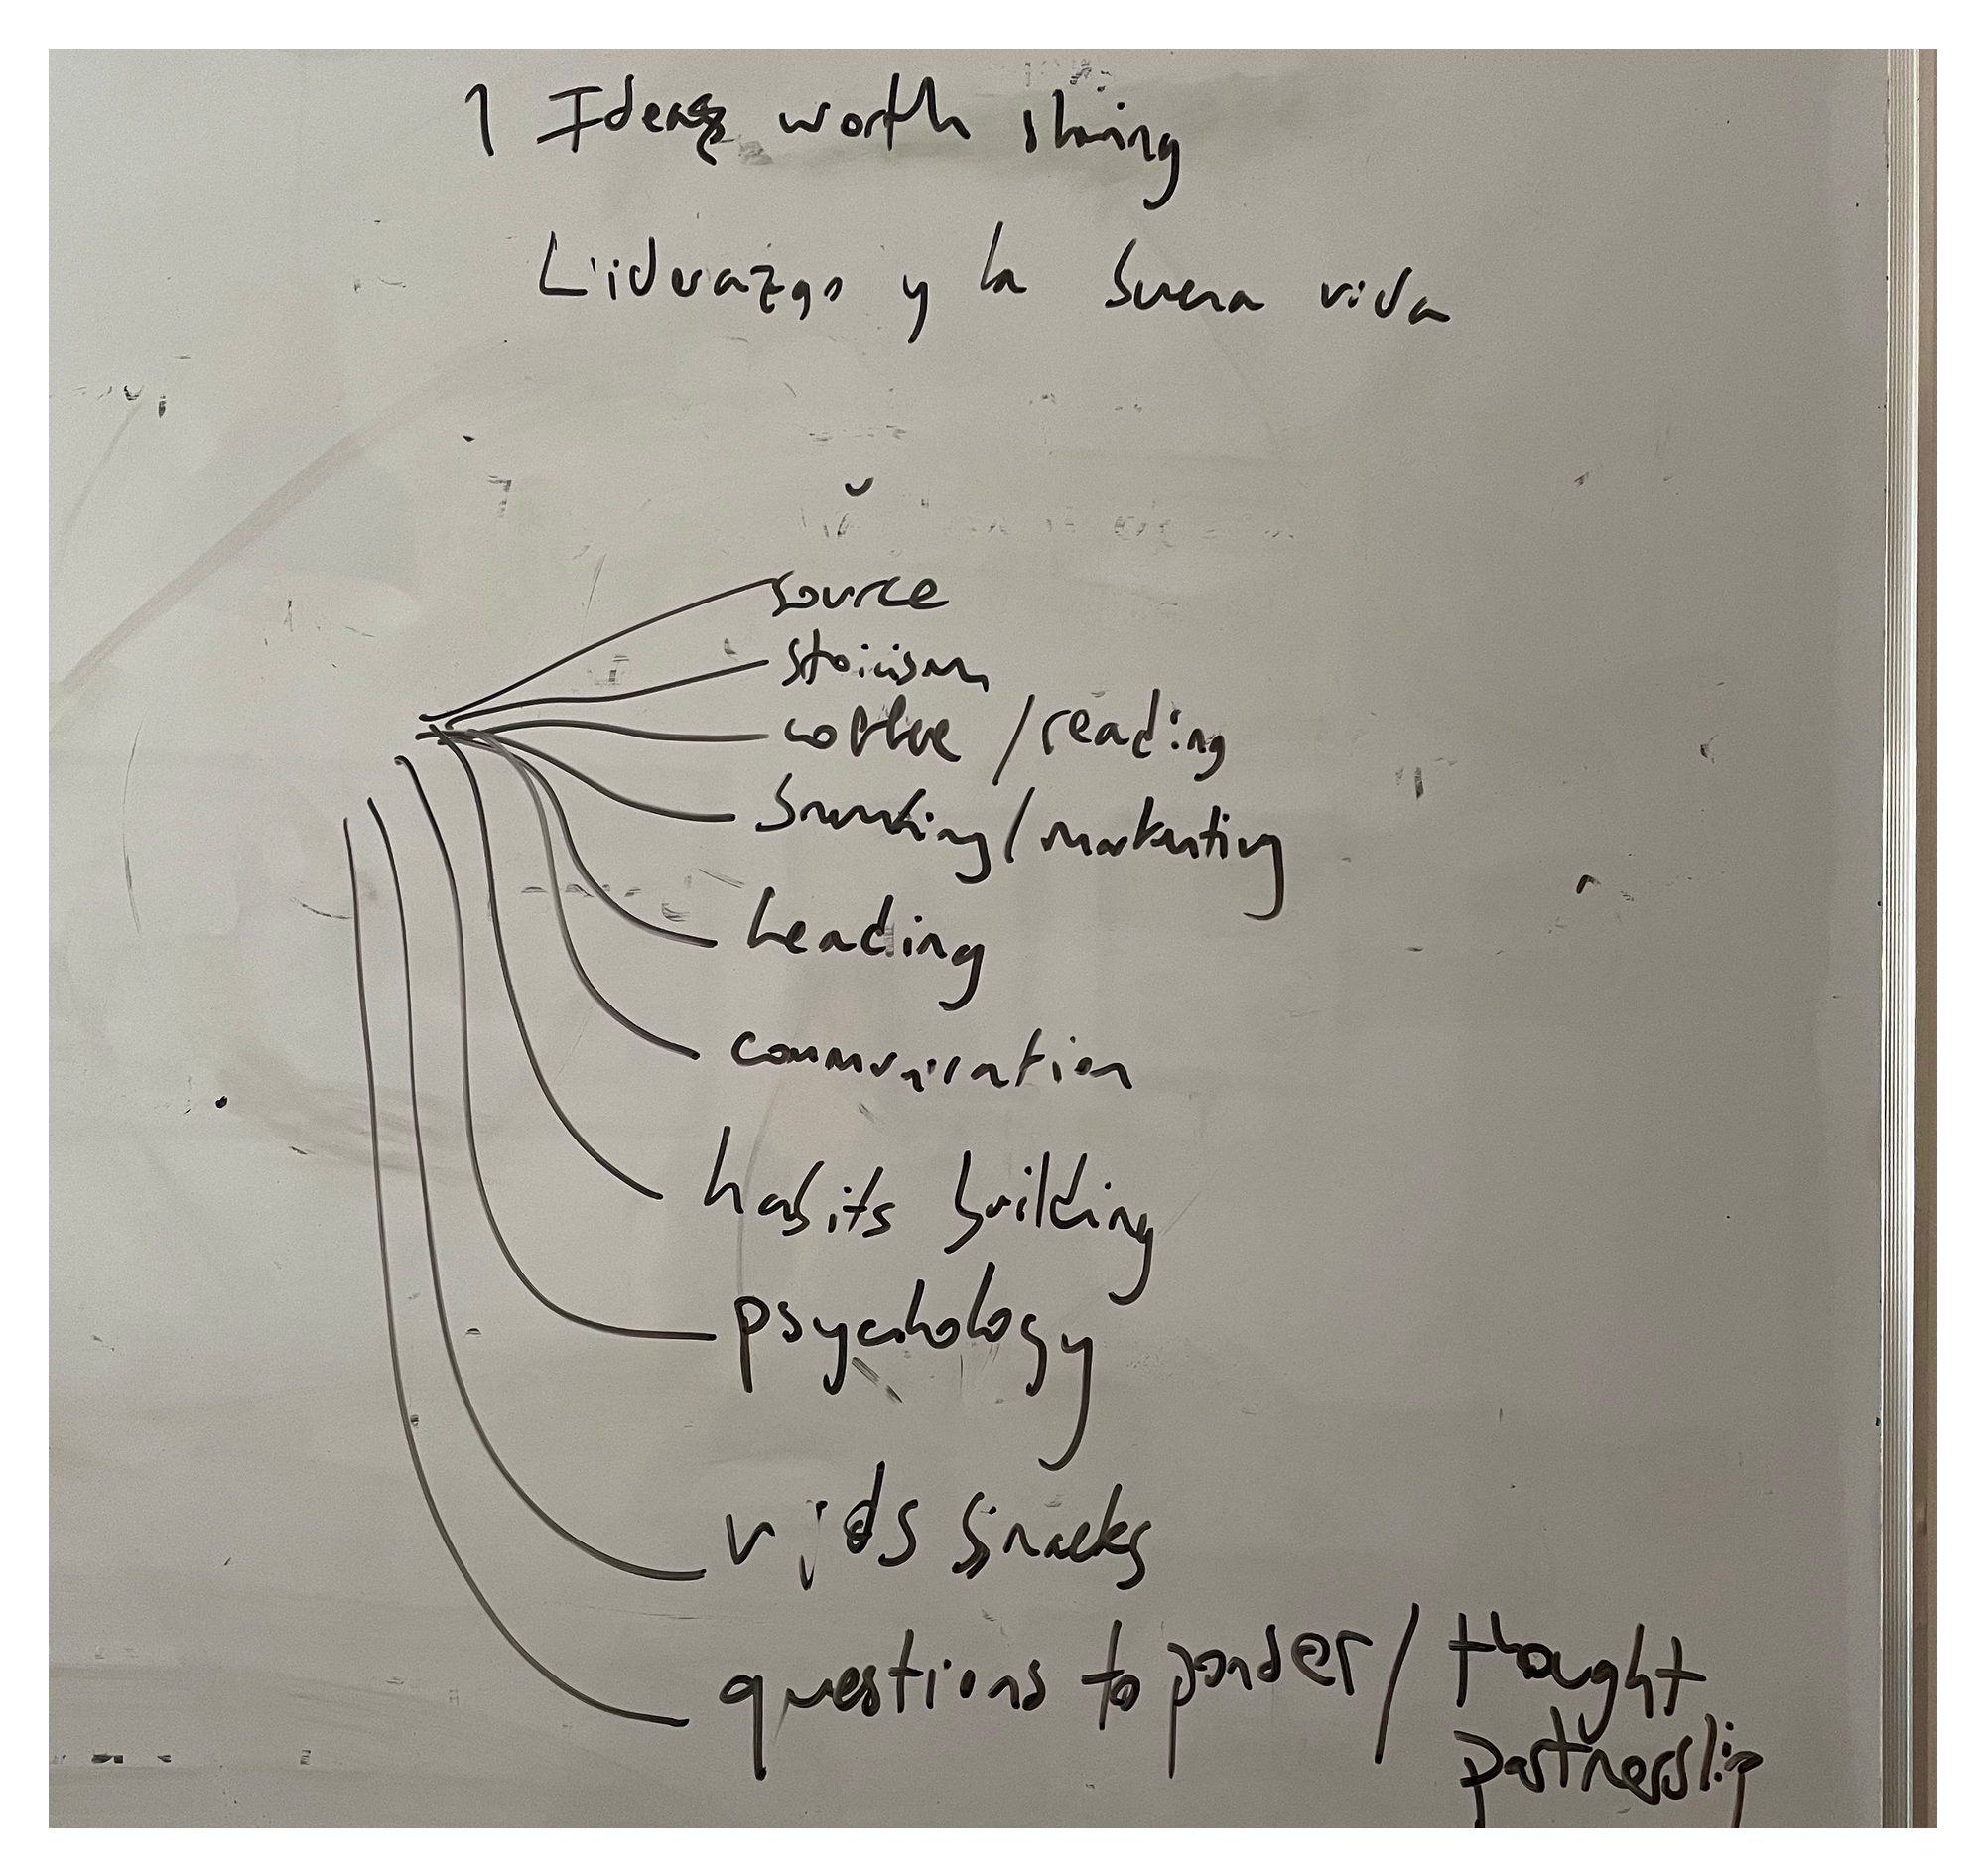 1 Ideas worth sharing
Liderazgo y la buena vida
source
stoicism
coffee / reading
branding / marketing
Leading
communication
habits building
psychology
vids snacks
questions to ponder / thought
partnership